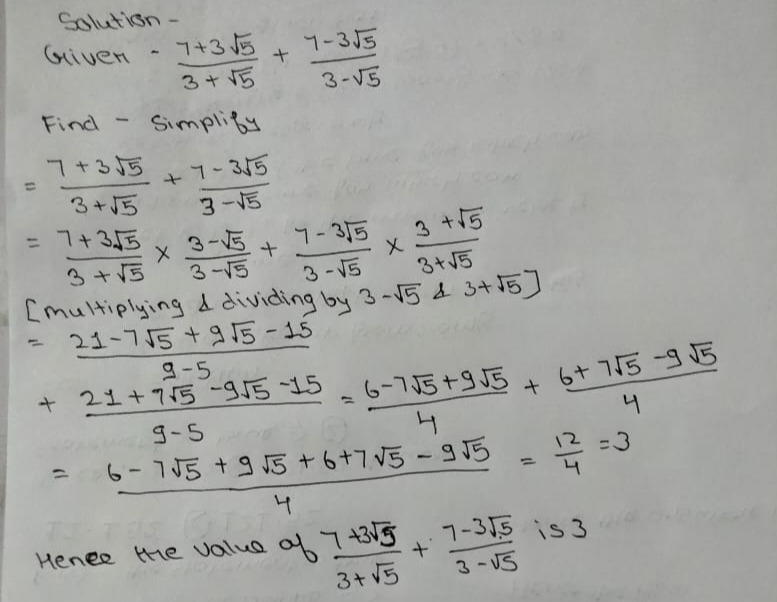 Solution -
Given - (7+3√5)/(3+√5) + (7-3√5)/(3-√5)
Find - Simplify
= (7+3√5)/(3+√5) + (7-3√5)/(3-√5)
= (7+3√5)/(3+√5) × (3-√5)/(3-√5) + (7-3√5)/(3-√5) × (3+√5)/(3+√5)
[multiplying & dividing by 3-√5 & 3+√5]
= (21-7√5+9√5-15)/(9-5)
+ (21+7√5-9√5-15)/(9-5) = (6-7√5+9√5)/4 + (6+7√5-9√5)/4
= (6-7√5+9√5+6+7√5-9√5)/4 = 12/4 = 3
Hence the value of (7+3√5)/(3+√5) + (7-3√5)/(3-√5) is 3